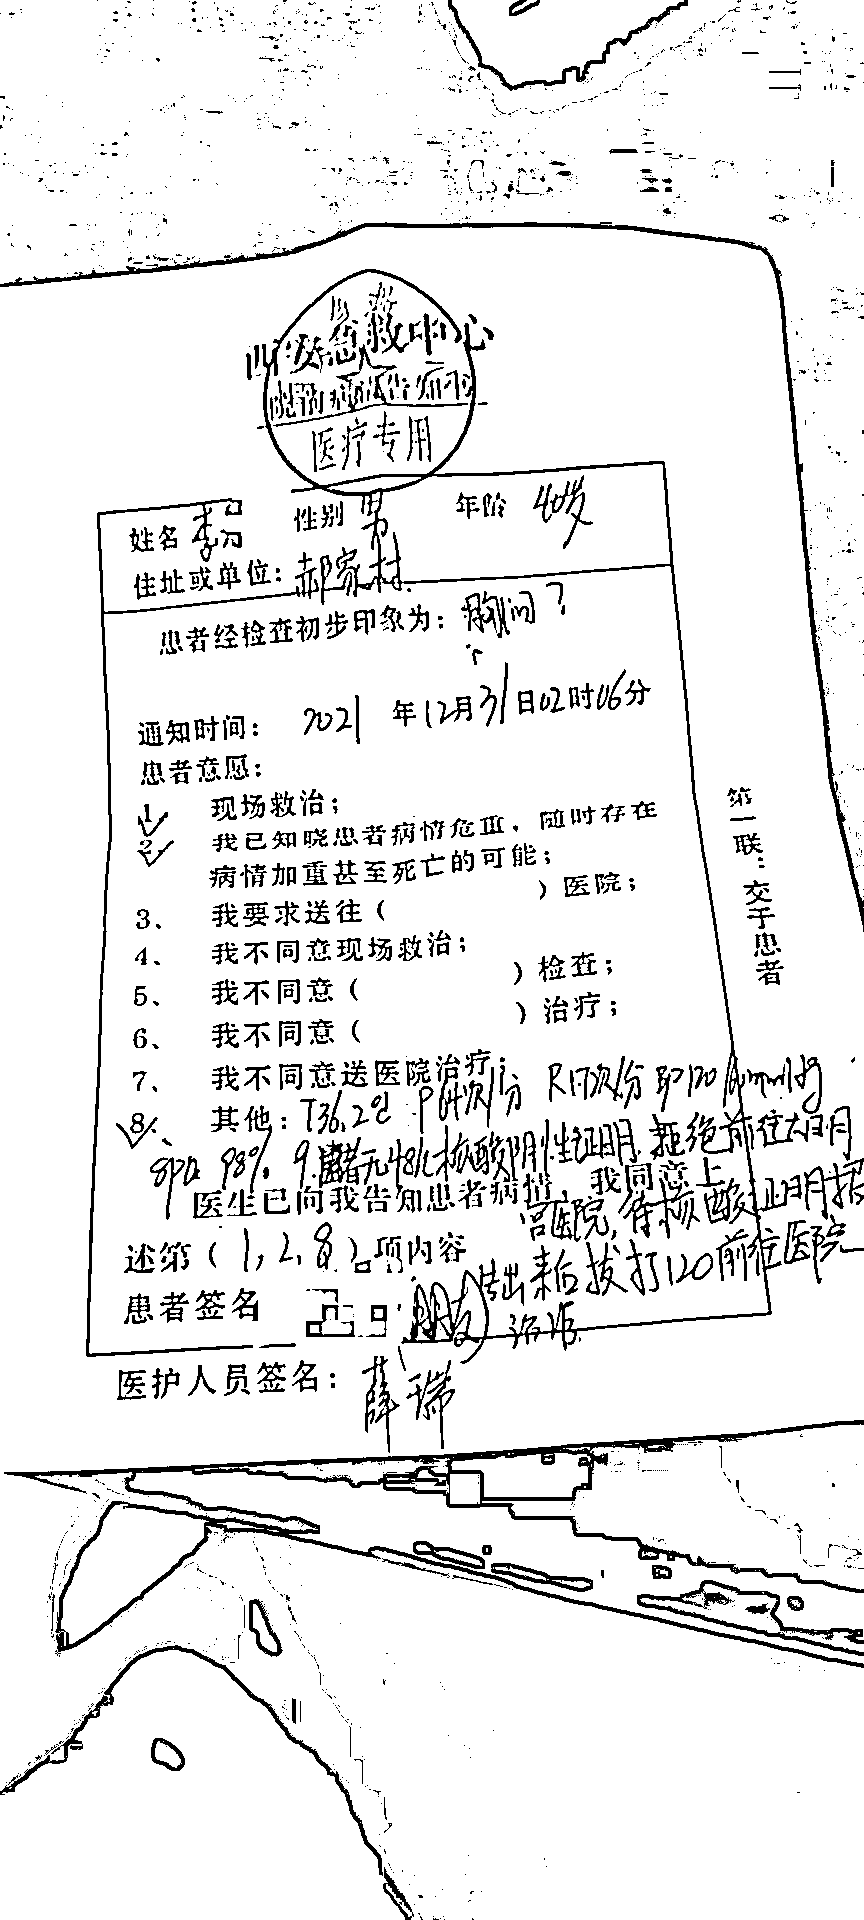 西安急救中心
医疗专用
姓名 李 性别 男 年龄 40岁
住址或单位：郝家村
患者经检查初步印象为：胸闷？
通知时间： 2021 年12月31日02时06分
患者意愿：
1、 现场救治；
2、 我已知晓患者病情危重，随时存在
病情加重甚至死亡的可能；
3、 我要求送往（ ）医院；
4、 我不同意现场救治；
5、 我不同意（ ）检查；
6、 我不同意（ ）治疗；
7、 我不同意送医院治疗；
8、 其他：T36.2℃ P 次/分 R17次/分 BP120/ mmHg
SPO2 98% 患者无48h核酸阴性证明，拒绝前往大明
宫医院，待核酸证明报
告出来后拨打120前往医院
治疗
医生已向我告知患者病情，我同意上
述第（1,2,8）项内容
患者签名 （朋友）
医护人员签名：薛瑞
第一联：交于患者